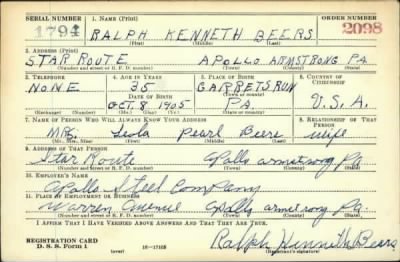 SERIAL NUMBER 1. NAME (Print) ORDER NUMBER
1794 RALPH KENNETH BEERS 2098
(First) (Middle) (Last)
2. ADDRESS (Print)
STAR ROUTE APOLLO ARMSTRONG PA.
(Number and street or R. F. D. number) (Town) (County) (State)
3. TELEPHONE 4. AGE IN YEARS 5. PLACE OF BIRTH 6. COUNTRY OF CITIZENSHIP
NONE 35 GARRETS RUN
DATE OF BIRTH (Town or county)
OCT. 8 1905 PA. U.S.A.
(Exchange) (Number) (Mo.) (Day) (Yr.) (State or country)
7. NAME OF PERSON WHO WILL ALWAYS KNOW YOUR ADDRESS 8. RELATIONSHIP OF THAT PERSON
MRS. Pearl Beers wife
(Mr., Mrs., Miss) (First) (Middle) (Last)
9. ADDRESS OF THAT PERSON
Star Route Apollo Armstrong Pa.
(Number and street or R. F. D. number) (Town) (County) (State)
10. EMPLOYER'S NAME
Apollo Steel Company
11. PLACE OF EMPLOYMENT OR BUSINESS
Warren Avenue Apollo Armstrong Pa.
(Number and street or R. F. D. number) (Town) (County) (State)
I AFFIRM THAT I HAVE VERIFIED ABOVE ANSWERS AND THAT THEY ARE TRUE.
REGISTRATION CARD Ralph Kenneth Beers
D. S. S. Form 1 (over) 16—17105 (Registrant's signature)